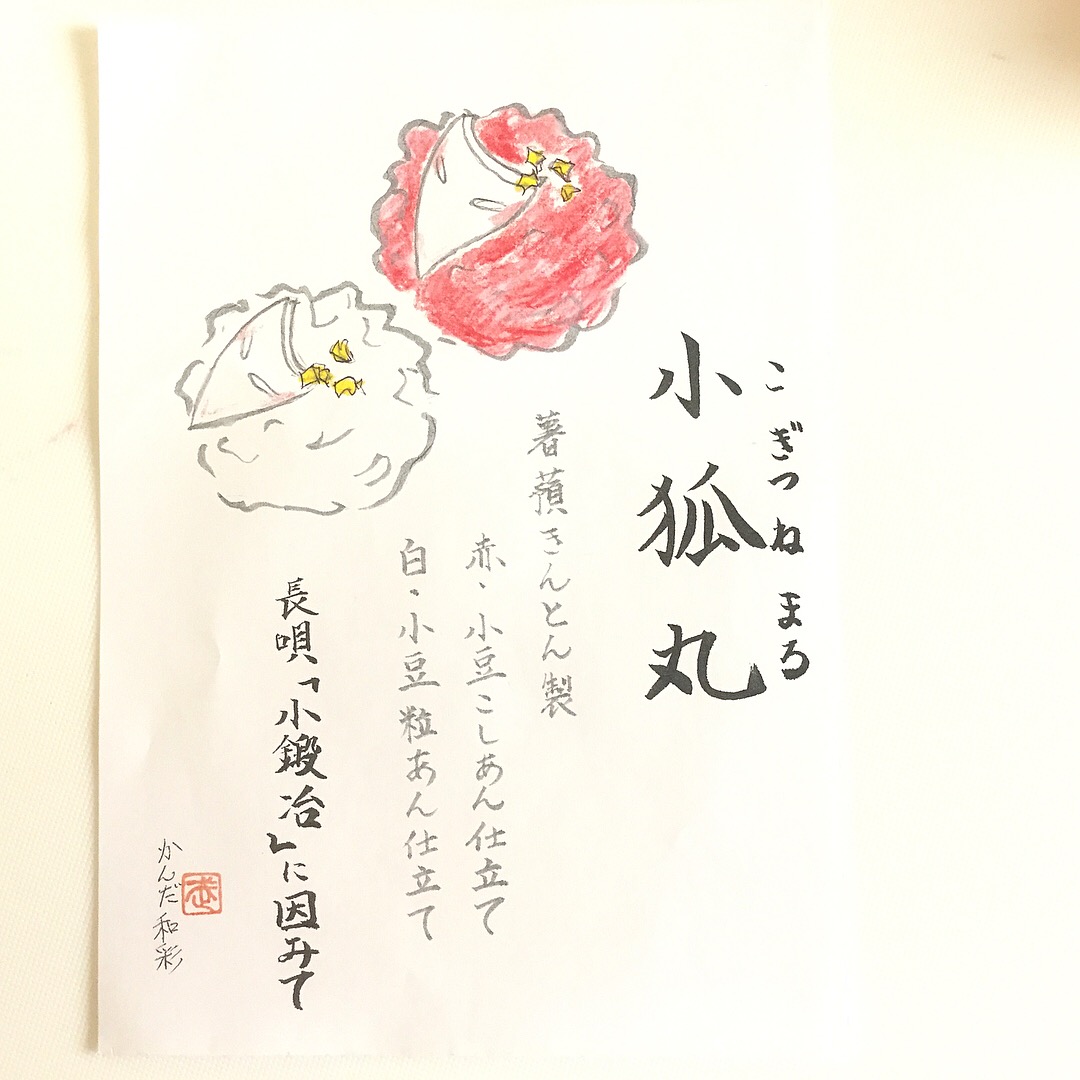 こぎつねまる
小狐丸
薯蕷きんとん製
赤・小豆こしあん仕立て
白・小豆粒あん仕立て
長唄「小鍛冶」に因みて
かんだ和彩